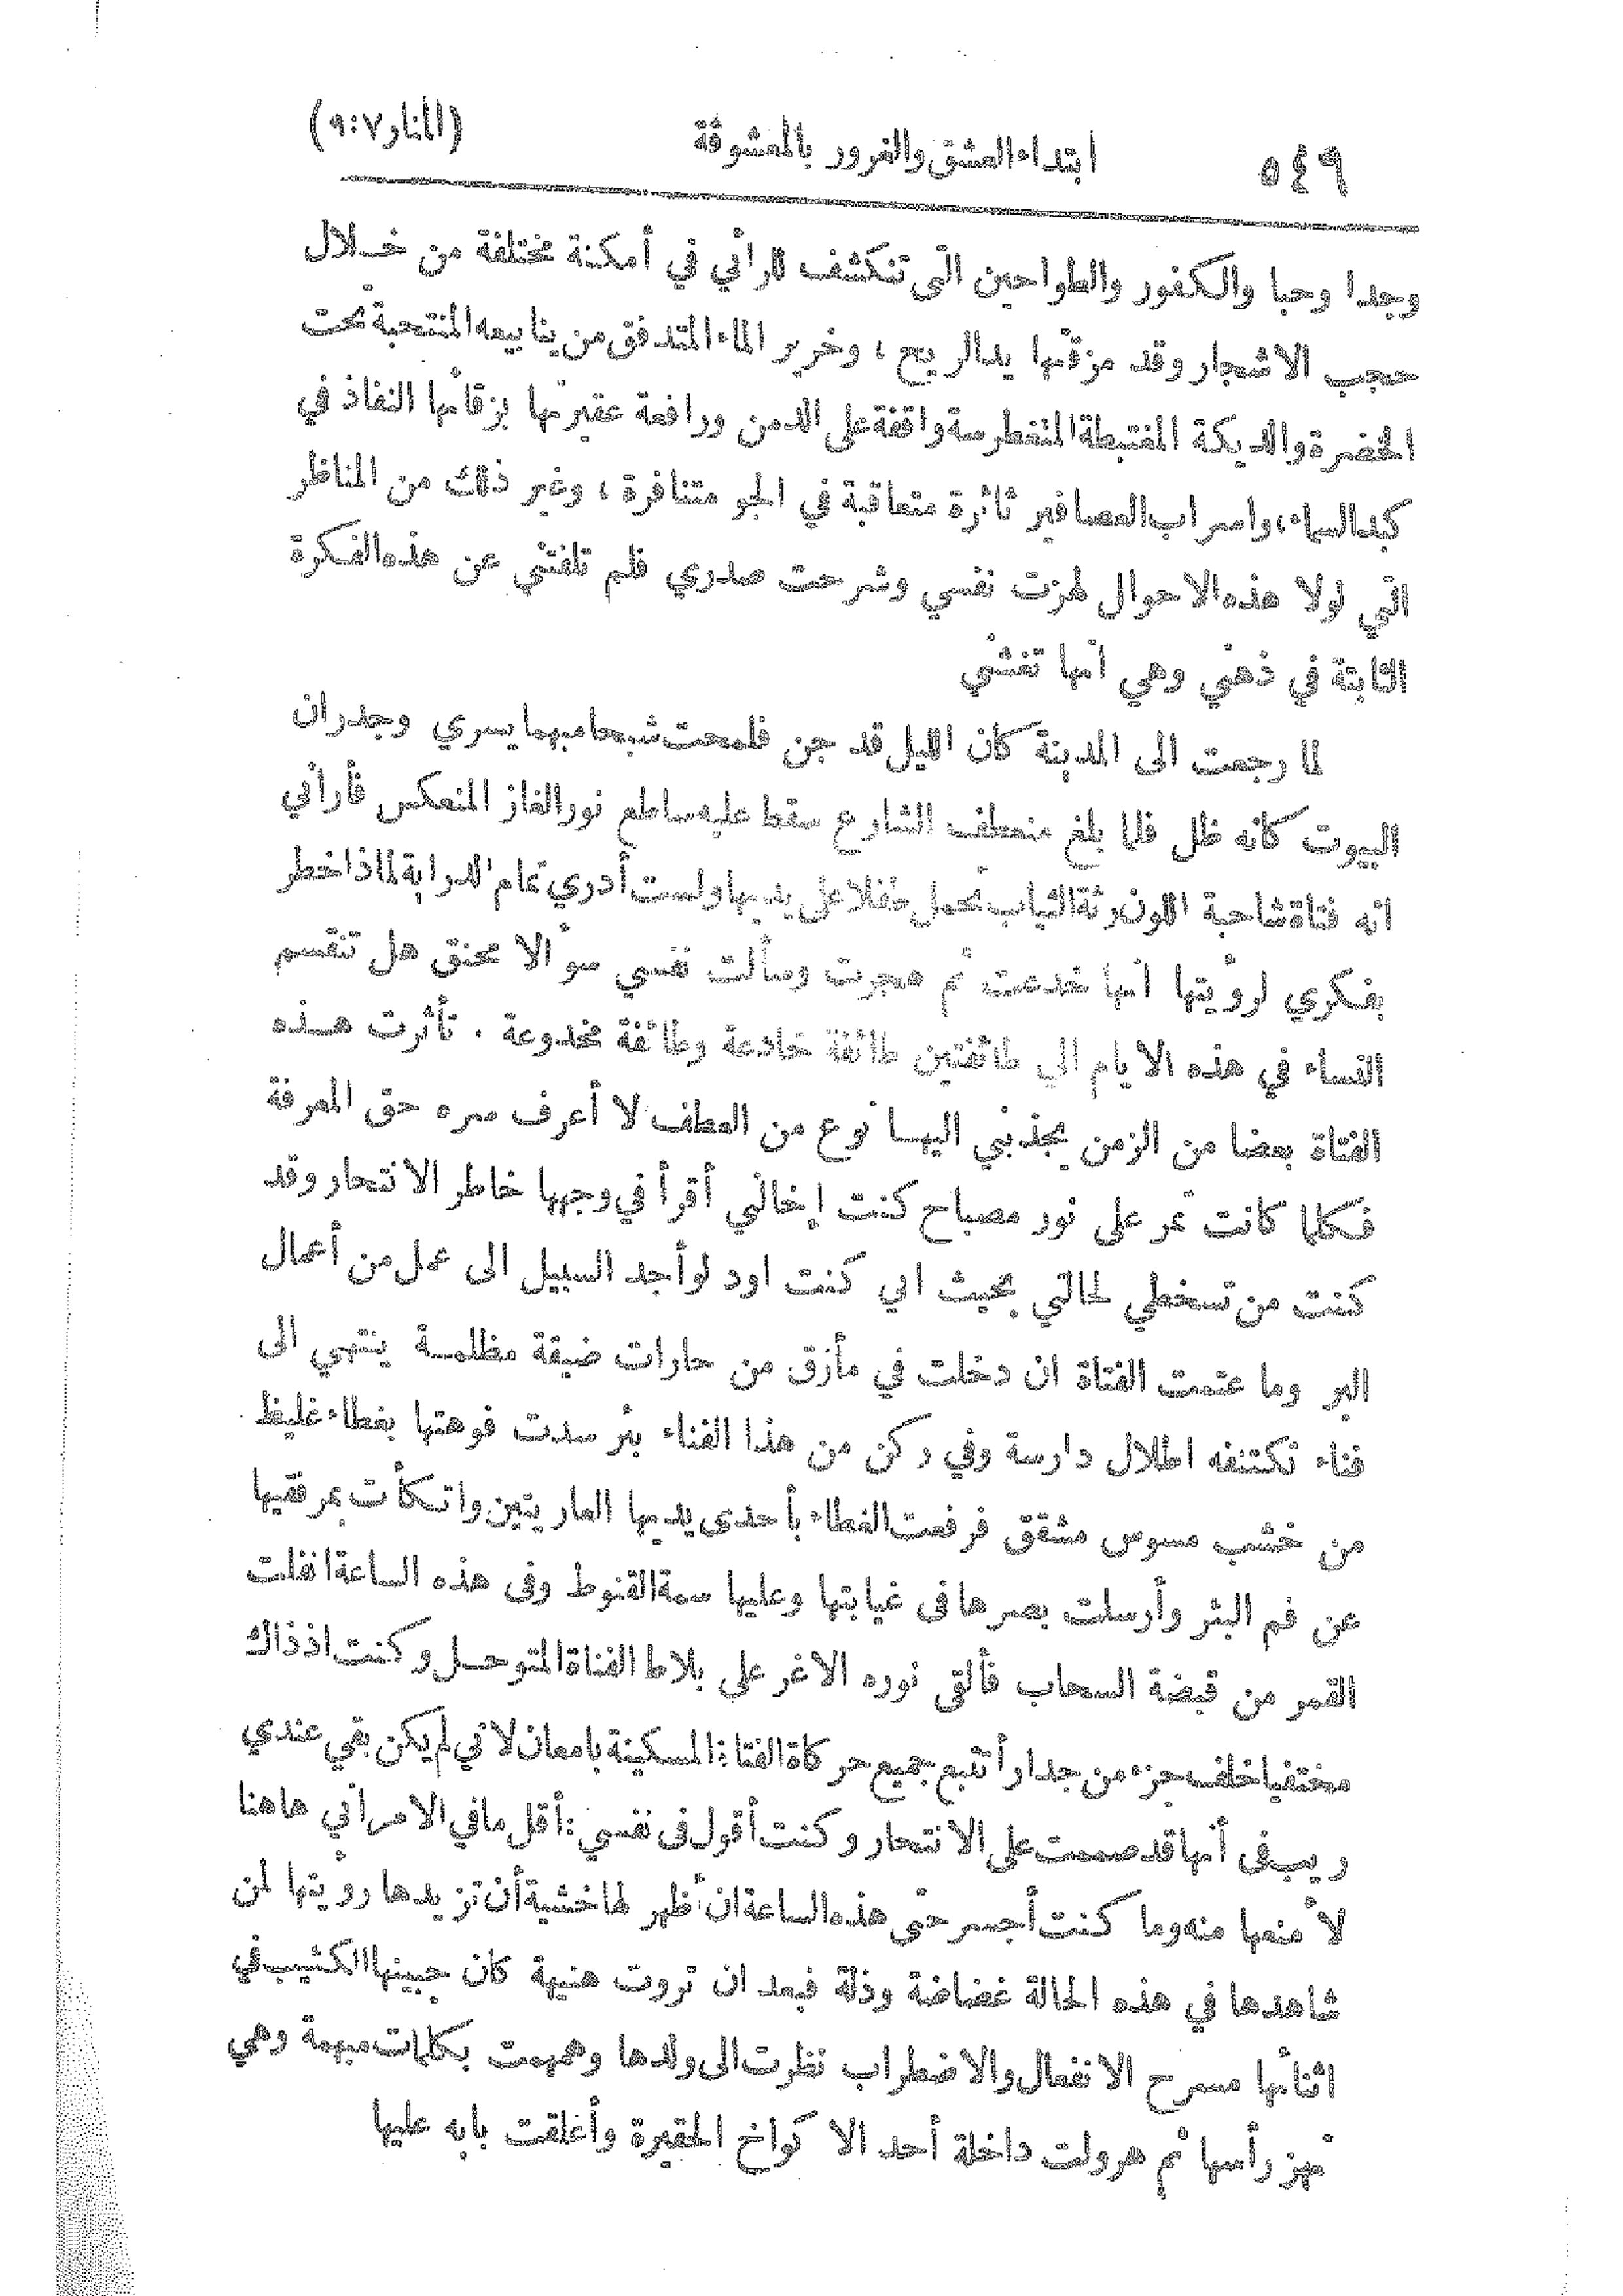 ٥٤٩ ابتداء العشق والغرور بالمعشوقة (المنار ٧:٩)
وجدا وحبا والكفور والطواحين التى تنكشف للرأني في أمكنة مختلفة من خلال
حجب الاشجار وقد مزقتها يدالريح ، وخرير الماء المتدفق من ينابيعه المنتحبة تحت
الخضرة والديكة المغتبطة المتغطرسة واقفة على الدمن ورافعة عقيرتها بزقاتها النفاذ في
كبدالسماء، واسراب العصافير ثائرة متعاقبة في الجو متنافرة ، وغير ذلك من المناظر
التي لولا هذه الاحوال لهزت نفسي وشرحت صدري فلم تلفتني عن هذه الفكرة
الثابتة في ذهني وهي انها تغشني
لما رجعت الى المدينة كان الليل قد جن فلمحت شبحا مبهما يسري وجدران
البيوت كانه ظل فلما بلغ منعطف الشارع سقط عليه ساطع نور الغاز المنعكس فأراني
انه فتاة شاحبة اللون رثة الثياب تحمل طفلا على يديها ولست أدري تمام الدراية لماذا خطر
بفكري لرؤيتها انها خدعت ثم هجرت وسألت نفسي سؤالا محنق هل تنقسم
النساء في هذه الايام الي طائفتين طائفة خادعة وطائفة مخدوعة . تأثرت هذه
الفتاة بعضا من الزمن يجذبني اليها نوع من العطف لا أعرف سره حق المعرفة
فكلما كانت تمر على نور مصباح كنت إخالني أقرأ في وجهها خاطر الانتحار وقد
كنت من تسخطي لحالتي بحيث اني كنت اود لو أجد السبيل الى عمل من أعمال
البر وما عتمت الفتاة ان دخلت في مأزق من حارات ضيقة مظلمة ينتهي الى
فناء تكتنفه اطلال دارسة وفي ركن من هذا الفناء بئر سدت فوهتها بغطاء غليظ
من خشب مسوس مشقق فرفعت الغطاء بأحدى يديها العاريتين واتكأت بمرفقيها
عن فم البئر وأرسلت بصرها فى غيابتها وعليها سمة القنوط وفى هذه الساعة انفلت
القمر من قبضة السحاب فألقى نوره الاغر على بلاط الفناة المتوحل وكنت اذ ذاك
مختفيا خلف جزء من جدار أتتبع جميع حركاة الفتاة المسكينة بامعان لاني لم يكن بقي عندي
ريب فى أنها قد صممت على الانتحار وكنت أقول فى نفسي : أقل مافي الامر أني هاهنا
لأمنعها منه وما كنت أجسر حتى هذه الساعة ان أظهر لها خشية أن تزيدها رؤيتها لمن
شاهدها في هذه الحالة غضاضة وذلة فبعد ان تروت هنيهة كان جبينها الكئيب في
اثنائها مسرح الانفعال والاضطراب نظرت الى ولدها وهمهمت بكلمات مبهمة وهي
تهز رأسها ثم هرولت داخلة أحد الاكواخ الحقيرة وأغلقت بابه عليها